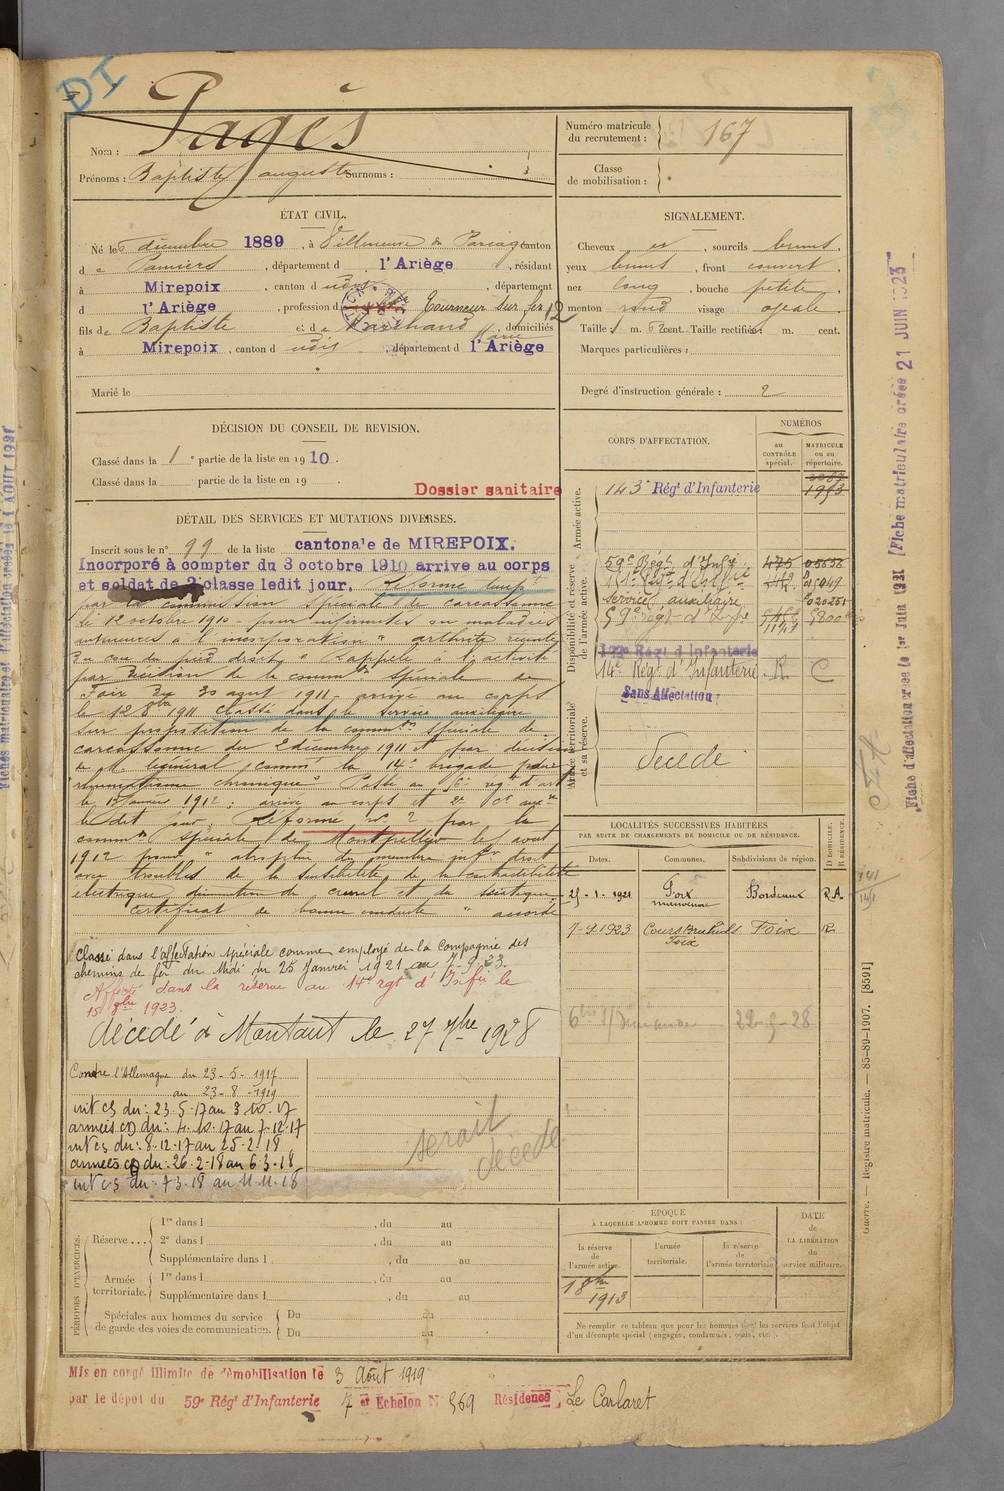 DI
Nom : Pagès
Prénoms : Baptiste auguste Surnoms :
Numéro matricule du recrutement : 167
Classe de mobilisation :
ÉTAT CIVIL.
Né le décembre 1889, à Villeneuve du Pariage canton
d e Pamiers, département d l'Ariège, résidant
à Mirepoix, canton d udit, département
d l'Ariège, profession d Tourneur sur fer
fils de Baptiste et de Marchand Marie, domiciliés
à Mirepoix, canton d udit, département d l'Ariège
Marié le
SIGNALEMENT.
Cheveux et, sourcils bruns.
yeux bruns, front couvert,
nez long, bouche petite,
menton rond visage ovale.
Taille : 1 m. 62 cent. Taille rectifiée : m. cent.
Marques particulières :
Degré d'instruction générale : 2
DÉCISION DU CONSEIL DE REVISION.
Classé dans la 1e partie de la liste en 1910.
Classé dans la partie de la liste en 19
Dossier sanitaire
DÉTAIL DES SERVICES ET MUTATIONS DIVERSES.
Inscrit sous le n° 99 de la liste cantonale de MIREPOIX.
Incorporé à compter du 3 octobre 1910 arrive au corps
et soldat de 2e classe ledit jour. Réformé temp
par la commission spéciale de Carcassonne
le 12 octobre 1910 pour infirmités ou maladies
antérieures à l'incorporation " arthrite récente
du cou du pied droit " Rappelé à l'activité
par décision de la comm on spéciale de
Foix du 30 août 1911 - arrivé au corps
le 12 8bre 1911 classé dans le service auxiliaire
sur proposition de la comm on spéciale de
carcassonne du 2 décembre 1911 et par décision
de M. le Général comm t la 14e brigade pour
" rhumatisme chronique " Passé au 56e regt d'art
le janvier 1912 : arrivé au corps et 2e ct aux re
le dit jour. Réformé n° 2 par la
comm on spéciale de Montpellier le août
1912 pour " atrophie du membre inf r droit
avec troubles de la sensibilité, de la contractilité
électrique, diminution du et du sciatique
certificat de bonne conduite " accordé
Classé dans l'affectation spéciale comme employé de la Compagnie des
chemins de fer du Midi du 25 Janvier 1921 au 7-9-23.
Affecté dans la réserve au 14e rgt d'Infie le
15 8bre 1923.
décédé à Montaut le 27 7bre 1928
Contre l'Allemagne du 23-5-1917
au 23-8-1919
int cs du : 23.5.17 au 3.10.17
armées cD du : 4.10.17 au 7.12.17
int cs du : 8.12.17 au 25.2.18
armées cD du : 26.2.18 au 6.3.18
int cs du : 7.3.18 au 11.11.18
serait décédé
CORPS D'AFFECTATION.
NUMÉROS
au CONTRÔLE spécial.
MATRICULE ou au RÉPERTOIRE.
Armée active.
143e Régt d'Infanterie 1953
Disponibilité et réserve de l'armée active.
59e Régt d'Infie 475
service auxiliaire
59e régt d'Infie
14e Régt d'Infanterie R C
Sans Affectation
Armée territoriale et sa réserve.
Décédé
LOCALITÉS SUCCESSIVES HABITÉES
PAR SUITE DE CHANGEMENTS DE DOMICILE OU DE RÉSIDENCE.
Dates. Communes. Subdivisions de région. D DOMICILE. R RÉSIDENCE.
25-1-1921 Foix Bordeaux R.A.
7-9-1923 Foix Foix R
22-5-28
PÉRIODES D'EXERCICES.
Réserve . . . 1re dans l , du au
2e dans l , du au
Supplémentaire dans l , du au
Armée territoriale. 1re dans l , du au
Supplémentaire dans l , du au
Spéciales aux hommes du service de garde des voies de communication. Du au
Du au
EPOQUE
À LAQUELLE L'HOMME DOIT PASSER DANS :
la réserve de l'armée active.
l'armée territoriale.
la réserve de l'armée territoriale.
DATE de LA LIBÉRATION du service militaire.
1 8bre 1913
Ne remplir ce tableau que pour les hommes dont les services font l'objet
d'un décompte spécial (engagés, condamnés, omis, etc.).
Mis en congé illimité de démobilisation le 3 Août 1919
par le dépôt du 59e Régt d'Infanterie 7 e Echelon N° 369 Résidence Le Carlaret
Guerre. — Registre matricule. — 85-89-1907. [8591]
Fiche d'affectation créée le 1er Juin 1921
Fiche matriculaire créée 21 JUIN 1923